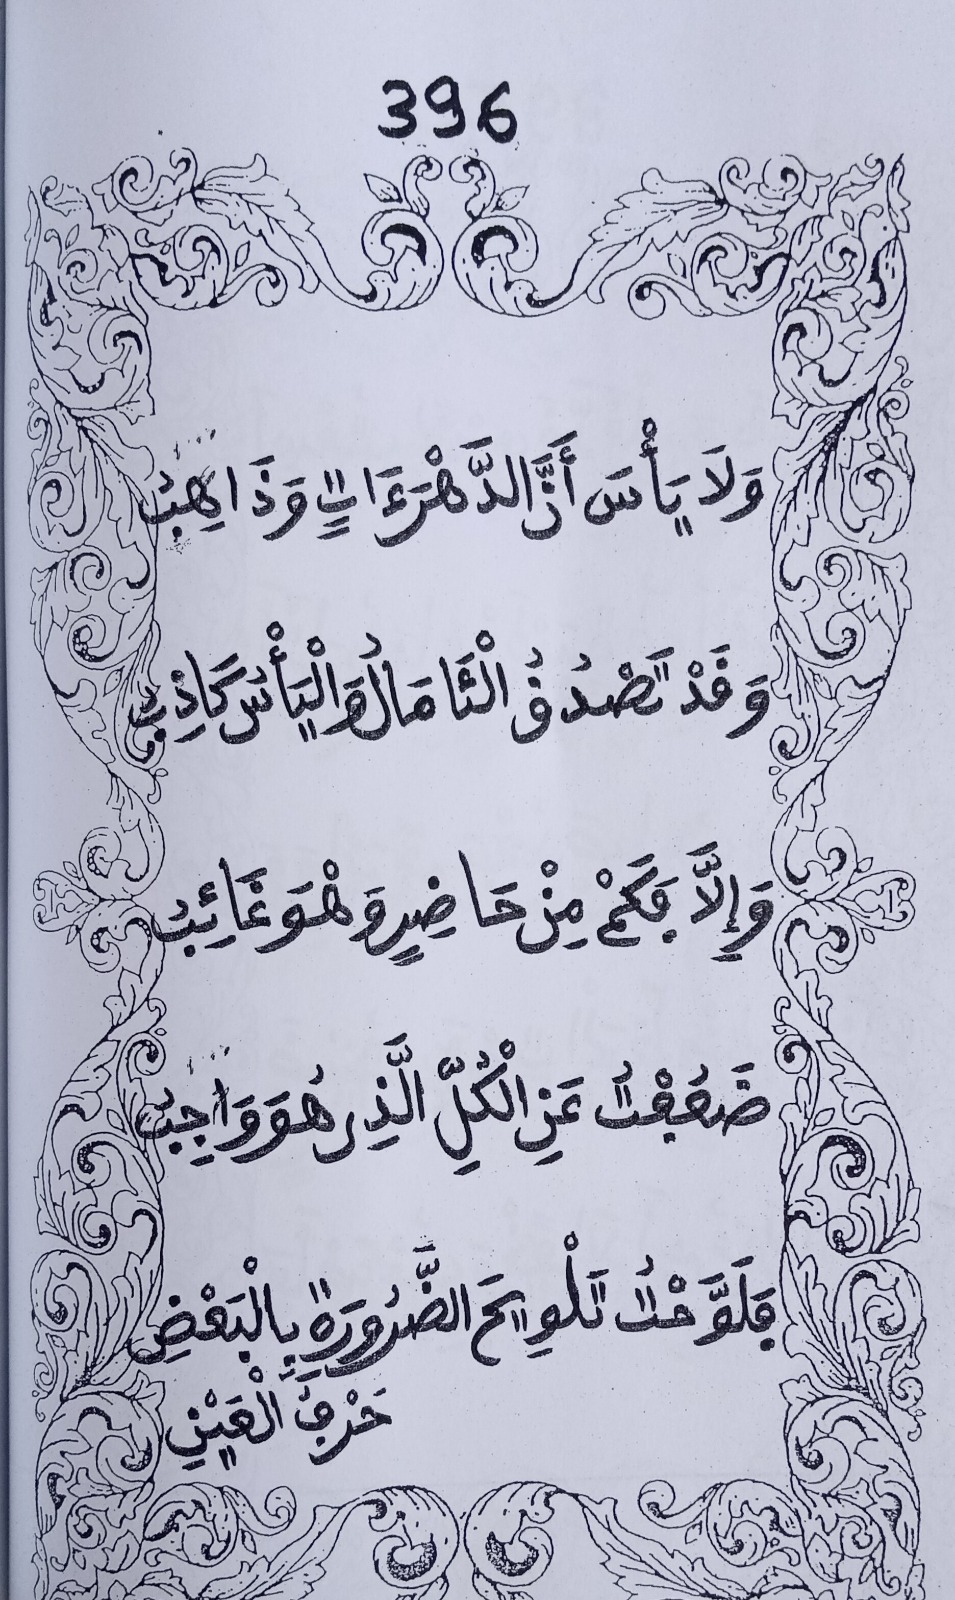 396
وَلَا يَأْسَ أَنَّ الدَّهْرَ ءَاتٍ وَذَاهِبُ
وَقَدْ تَصْدُقُ الْـَٔامَالُ وَالْيَأْسُ كَاذِبُ
وَإِلَّا فَكَمْ مِنْ حَاضِرٍ وَهْوَ غَائِبُ
ضَعُفْتُ عَنِ الْكُلِّ الَّذِي هُوَ وَاجِبُ
فَلَوَّحْتُ تَلْوِيحَ الضَّرُورَةِ بِالْبَعْضِ
حَرْفُ الْعَيْنِ